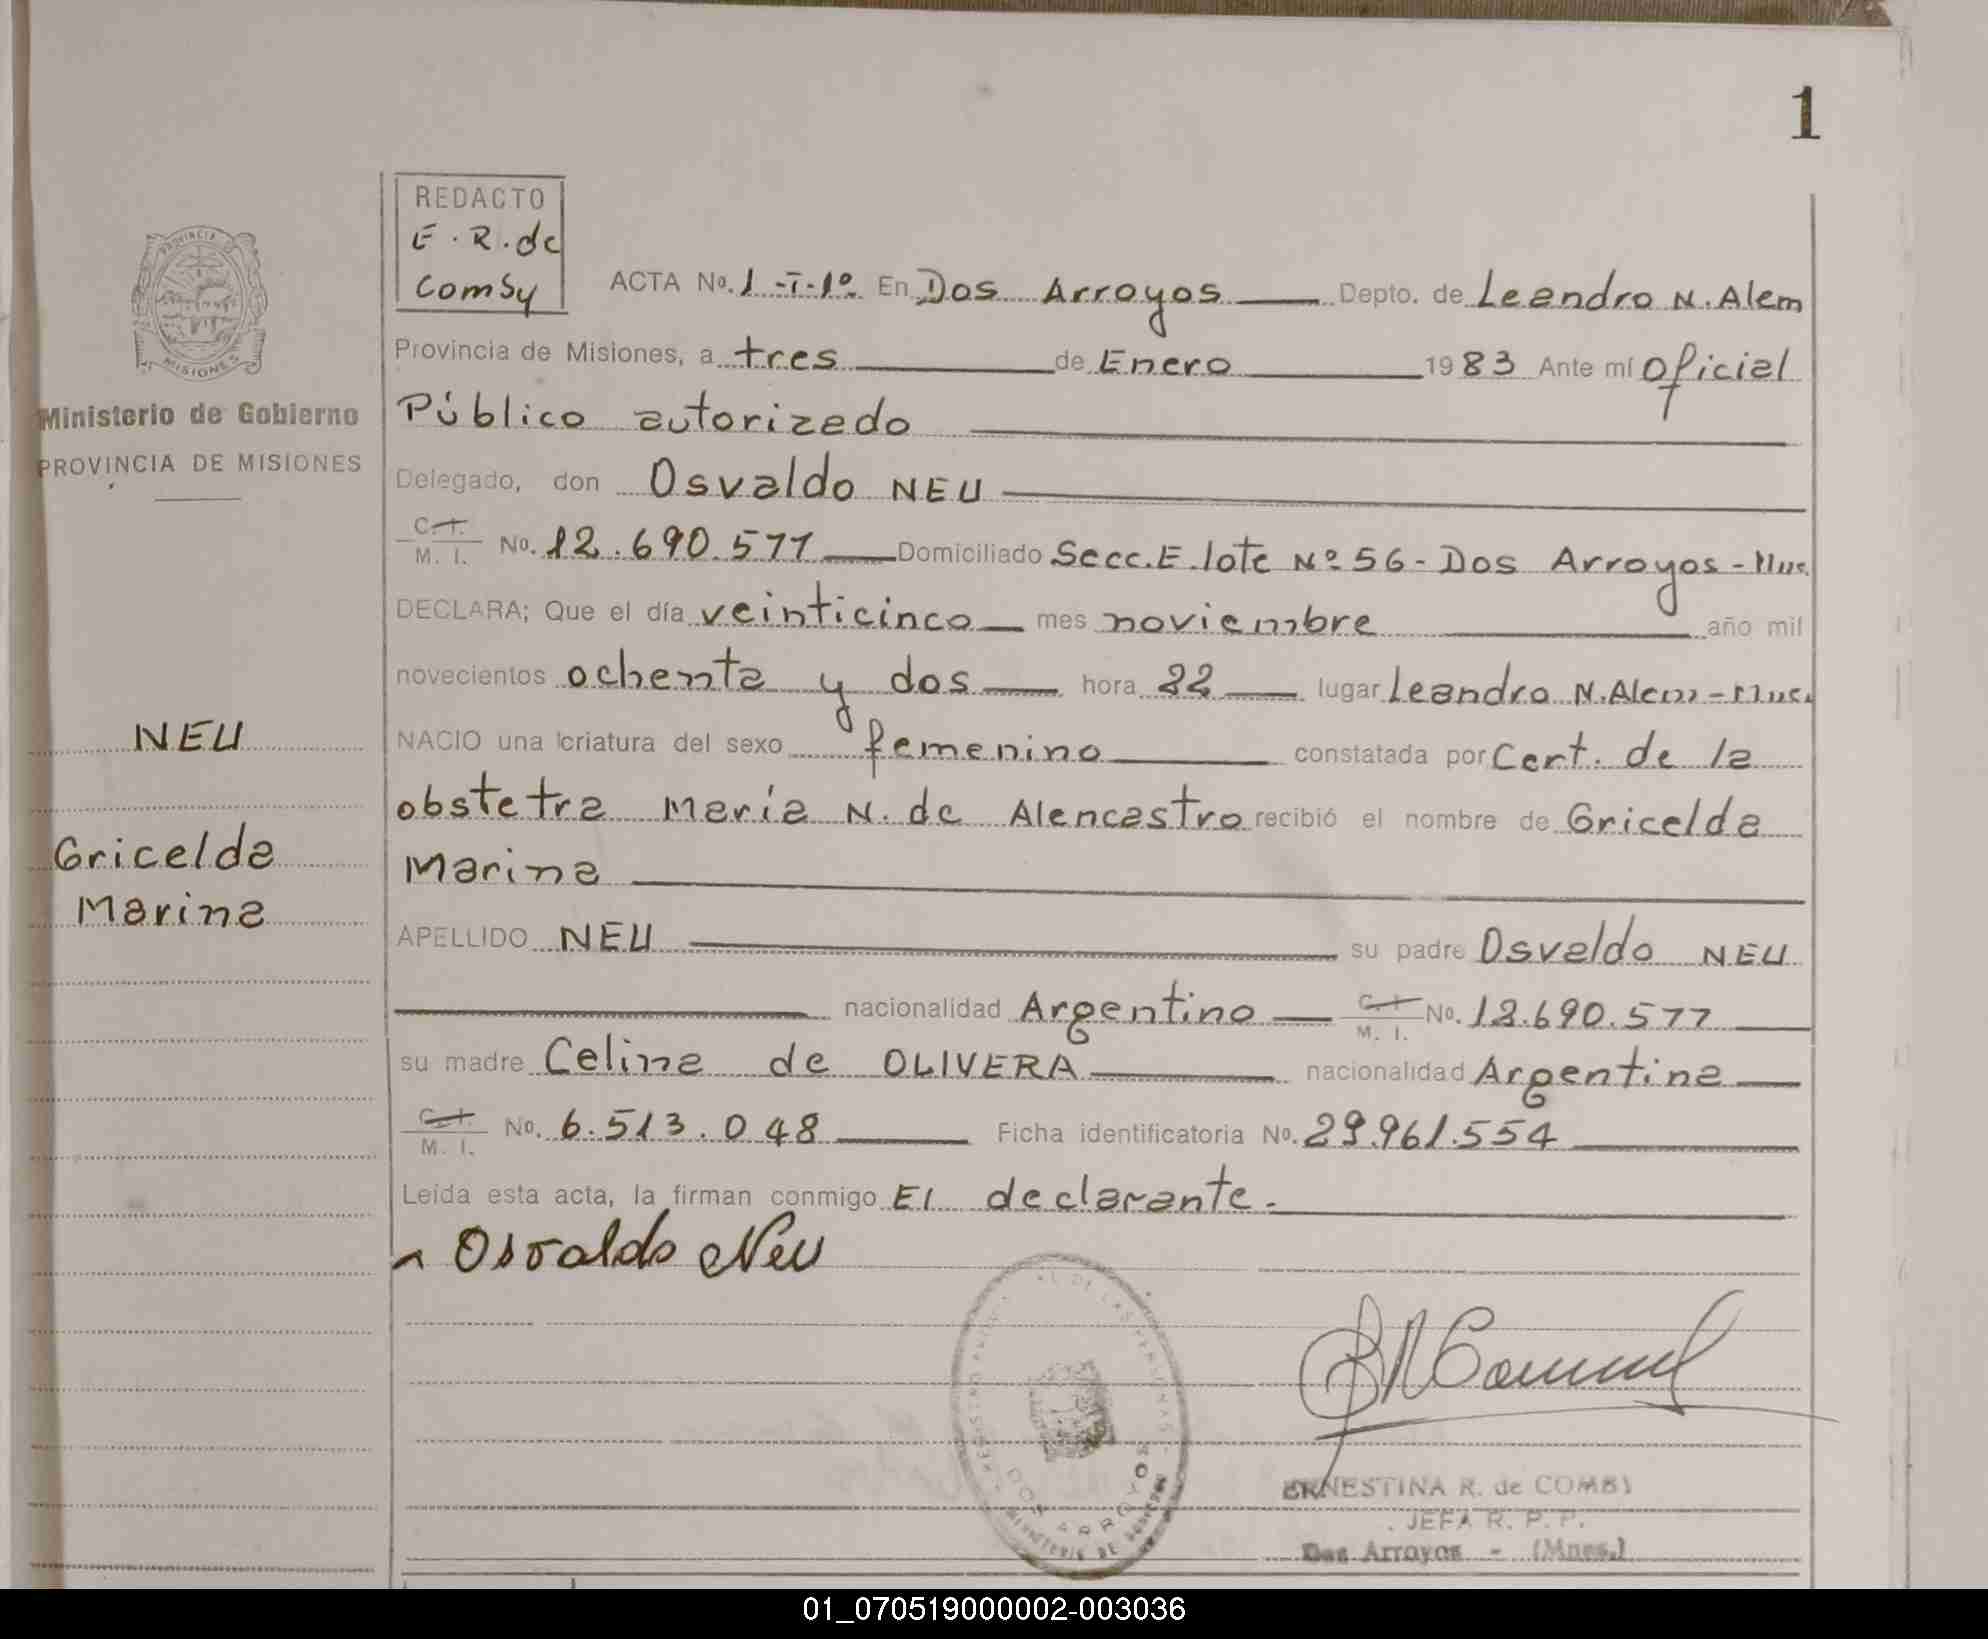 1
REDACTO
E. R. de
ComSy
PROVINCIA D
MISIONES
Ministerio de Gobierno
PROVINCIA DE MISIONES
ACTA No. 1 -I-1º En Dos Arroyos Depto. de Leandro N. Alem
Provincia de Misiones, a tres de Enero 1983 Ante mí Oficial
Público autorizado
Delegado, don Osvaldo NEU
C. I. M. I. No. 12.690.577 Domiciliado Secc. E. lote Nº 56 - Dos Arroyos -
DECLARA; Que el día veinticinco mes noviembre año mil
novecientos ochenta y dos hora 22 lugar Leandro N. Alem -
NACIO una criatura del sexo femenino constatada por Cert. de la
obstetra María N. de Alencastro recibió el nombre de Gricelda
Marina
APELLIDO NEU su padre Osvaldo NEU
nacionalidad Argentino C. I. M. I. No. 12.690.577
su madre Celina de OLIVERA nacionalidad Argentina
C. I. M. I. No. 6.513.048 Ficha identificatoria No. 29.961.554
Leída esta acta, la firman conmigo El declarante.-
Osvaldo Neu
NEU
Gricelda
Marina
DE LAS PERSONAS
DOS ARROYOS
MINISTERIO DE GOBIERNO
ERNESTINA R. de COMSY
JEFA R. P. P.
Dos Arroyos - (Mnes.)
01_070519000002-003036